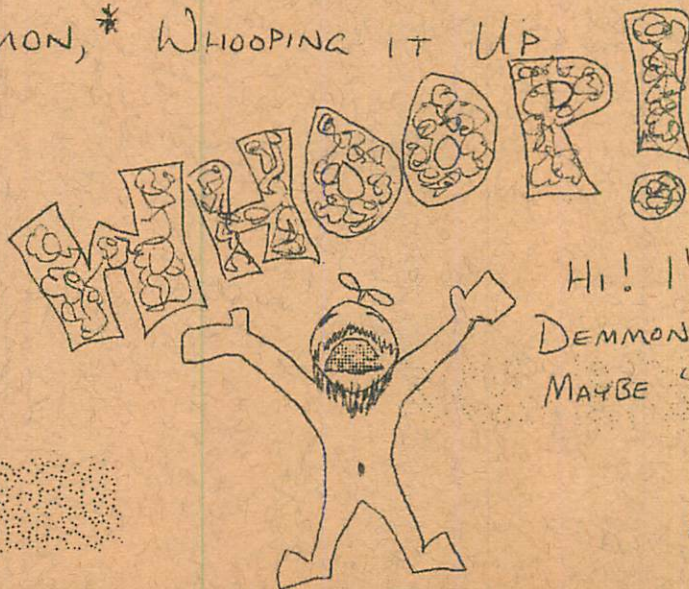 MON,* WHOOPING IT UP
WHOOP!
HI! I'
DEMMON
MAYBE "